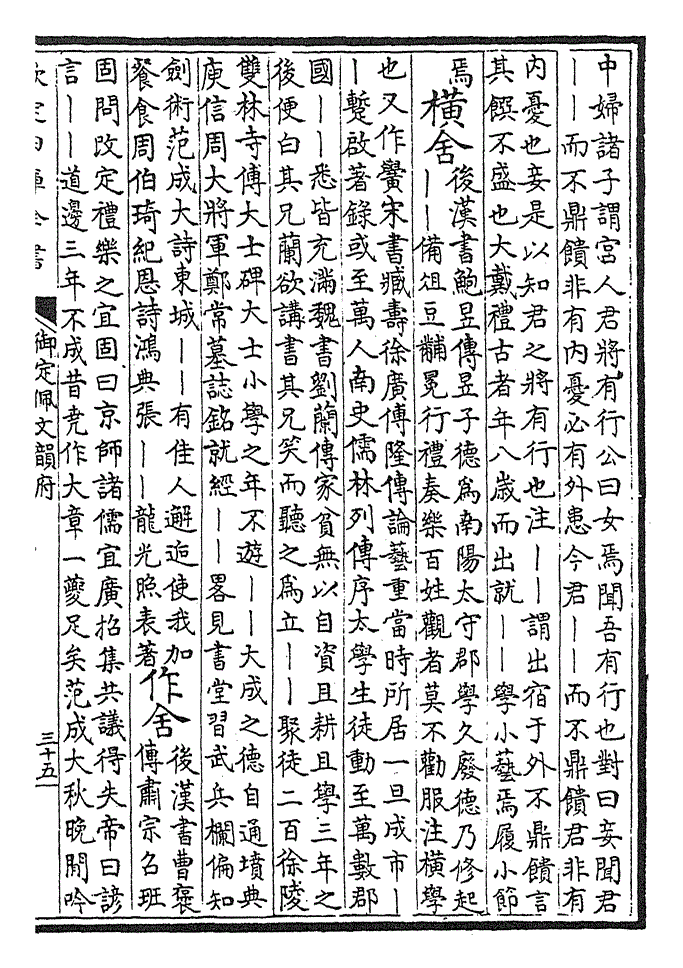 中婦諸子謂宮人君將有行公曰女焉聞吾有行也對曰妾聞君
——而不鼎饋非有内憂必有外患今君——而不鼎饋君非有
内憂也妾是以知君之將有行也注——謂出宿于外不鼎饋言
其饌不盛也大戴禮古者年八歲而出就——學小藝焉履小節
焉
橫舍
後漢書鮑昱傳昱子德為南陽太守郡學久廢德乃修起
——備俎豆黼冕行禮奏樂百姓觀者莫不勸服注橫學
也又作黌宋書臧燾徐廣傅隆傳論藝重當時所居一旦成市—
—蹔啟著錄或至萬人南史儒林列傳序太學生徒動至萬數郡
國——悉皆充滿魏書劉蘭傳家貧無以自資且耕且學三年之
後便白其兄蘭欲講書其兄笑而聽之為立——聚徒二百徐陵
雙林寺傅大士碑大士小學之年不遊——大成之德自通墳典
庾信周大將軍鄭常墓誌銘就經——畧見書堂習武兵欄偏知
劍術范成大詩東城——有佳人邂逅使我加
餐食周伯琦紀恩詩鴻典張——龍光照表著
作舍
後漢書曹褒
傳肅宗召班
固問改定禮樂之宜固曰京師諸儒宜廣招集共議得失帝曰諺
言——道邊三年不成昔堯作大章一夔足矣范成大秋晚閒吟
欽定四庫全書
御定佩文韻府
三十五